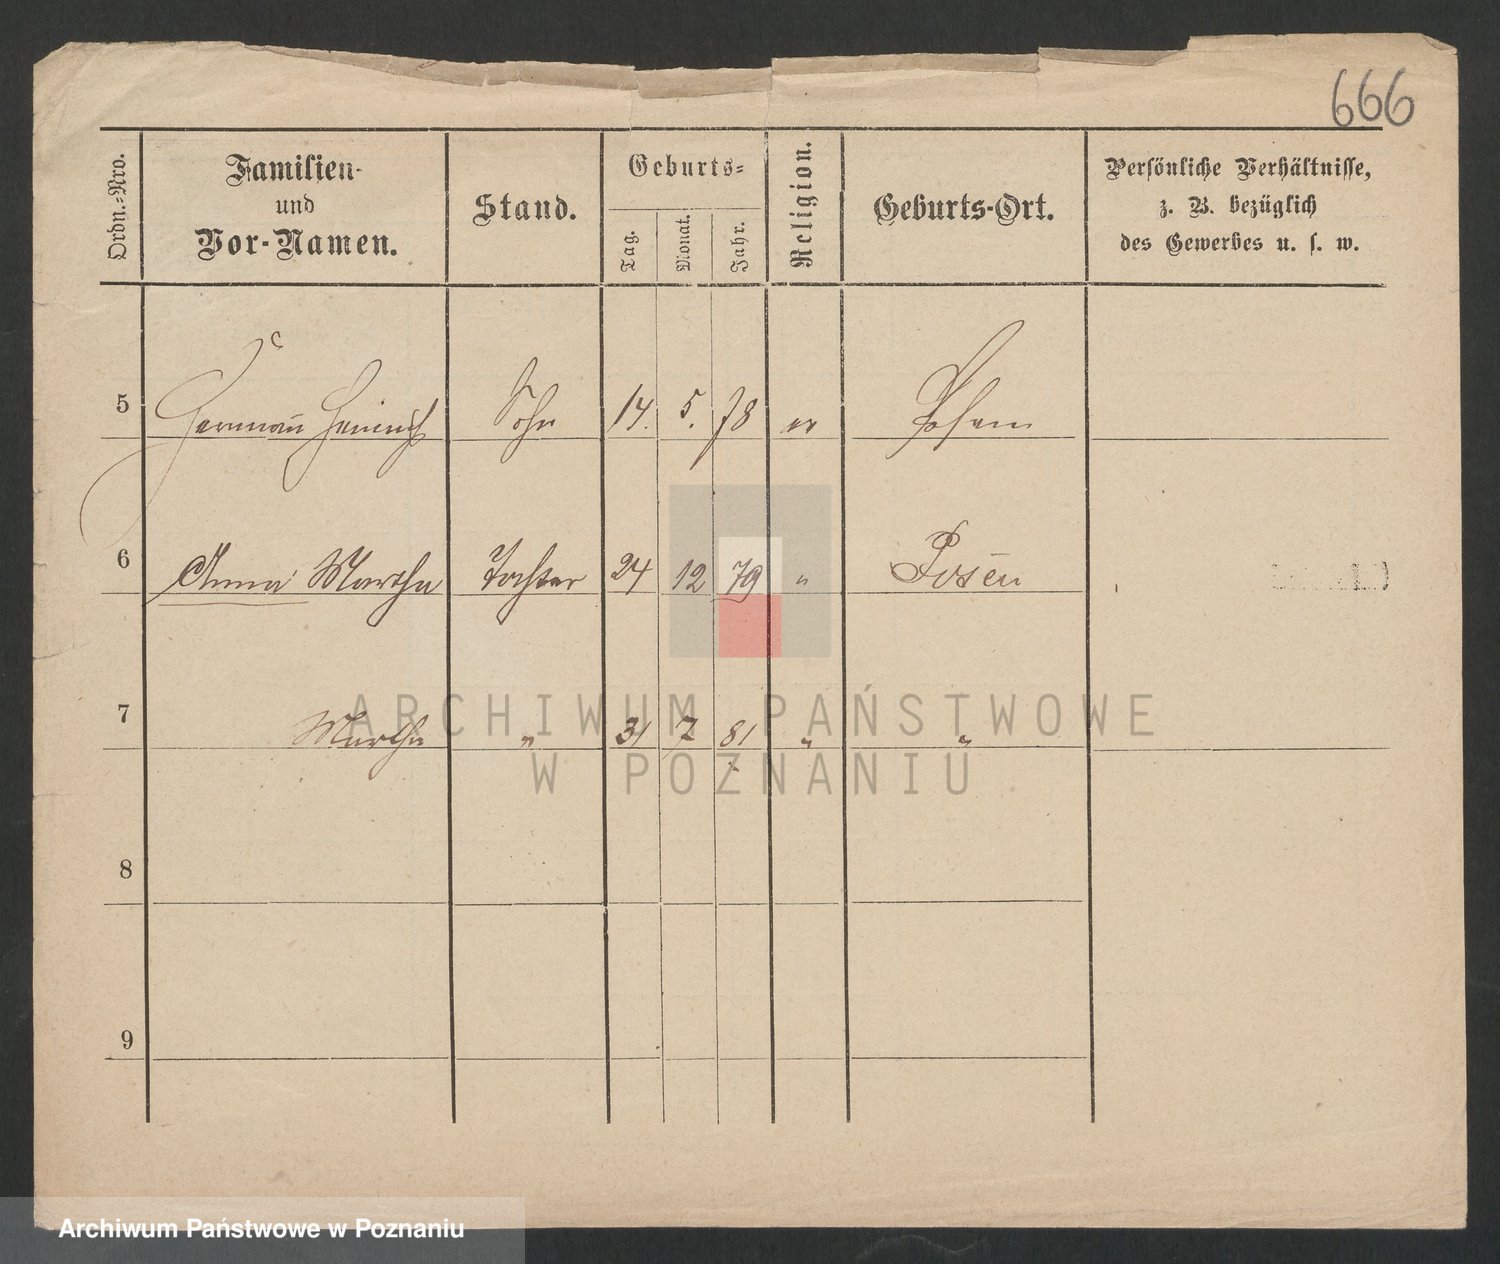 666
Ordn.-Nro.
Familien-
und
Vor-Namen.
Stand.
Geburts-
Tag.
Monat.
Jahr.
Religion.
Geburts-Ort.
Persönliche Verhältnisse,
z. B. bezüglich
des Gewerbes u. s. w.
5 Hermann Heinrich Sohn 14. 5. 78 ev Posen
6 Anna Martha Tochter 24 12 79 " Posen
7 Martha " 31 7 81 " "
8
9
ARCHIWUM PAŃSTWOWE
W POZNANIU
Archiwum Państwowe w Poznaniu